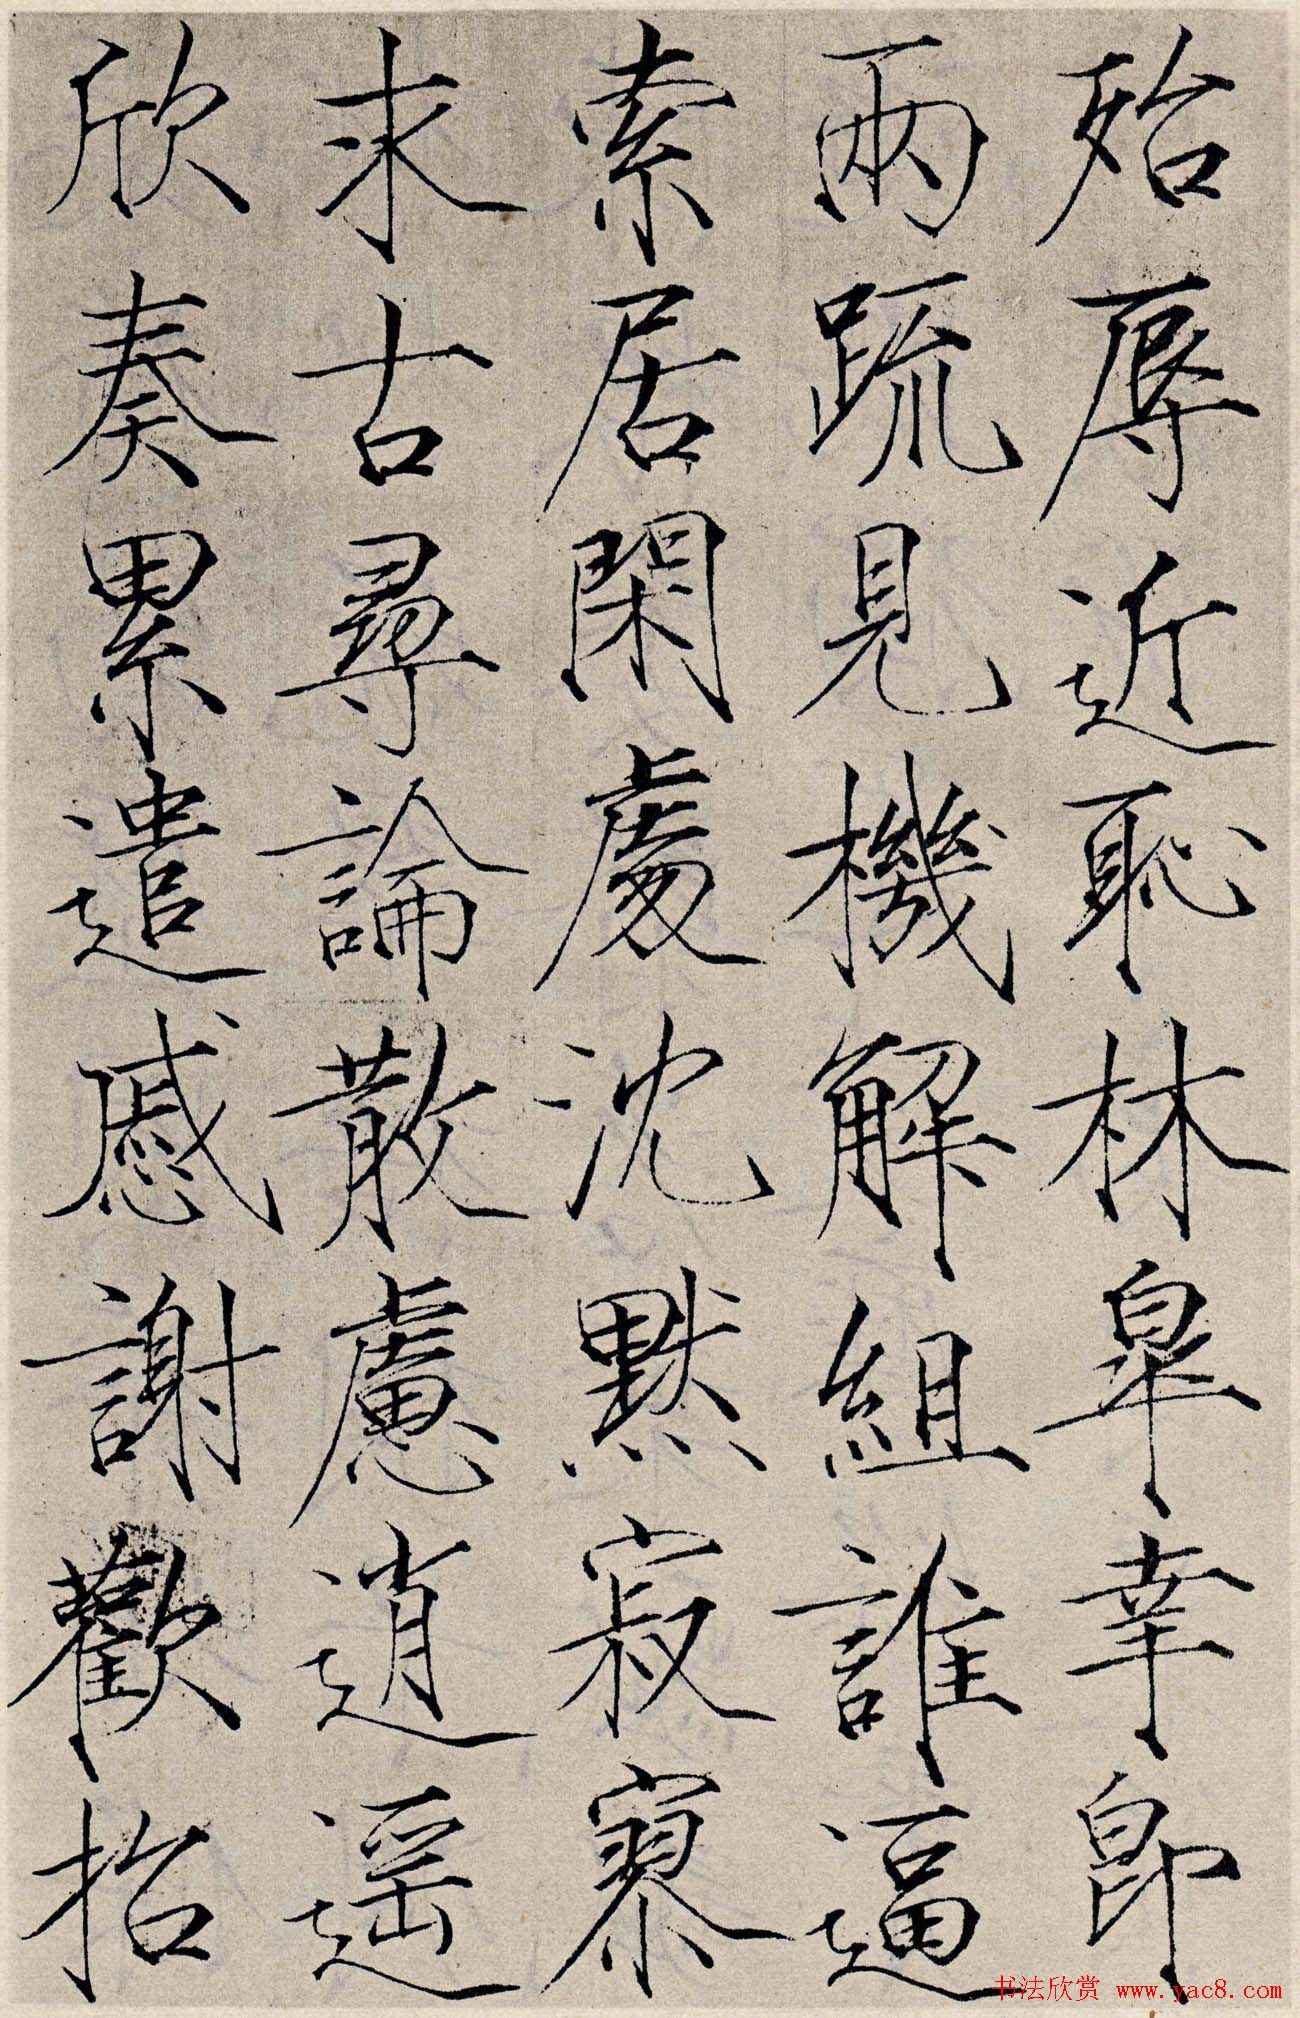 殆辱近恥林皐幸即
兩疏見機解組誰逼
索居閑處沈默寂寥
求古尋論散慮逍遥
欣奏累遣慼謝歡招
书法欣赏 www.yac8.com